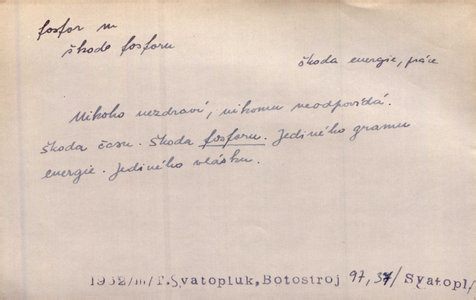 fosfor m
škoda fosforu
škoda energie, práce
Nikoho nezdraví, nikomu neodpovídá.
škoda času. škoda fosforu. Jediného gramu
energie. Jediného vlásku.
1952/m/T.Svatopluk, Botostroj 97,37/ Svatopl.